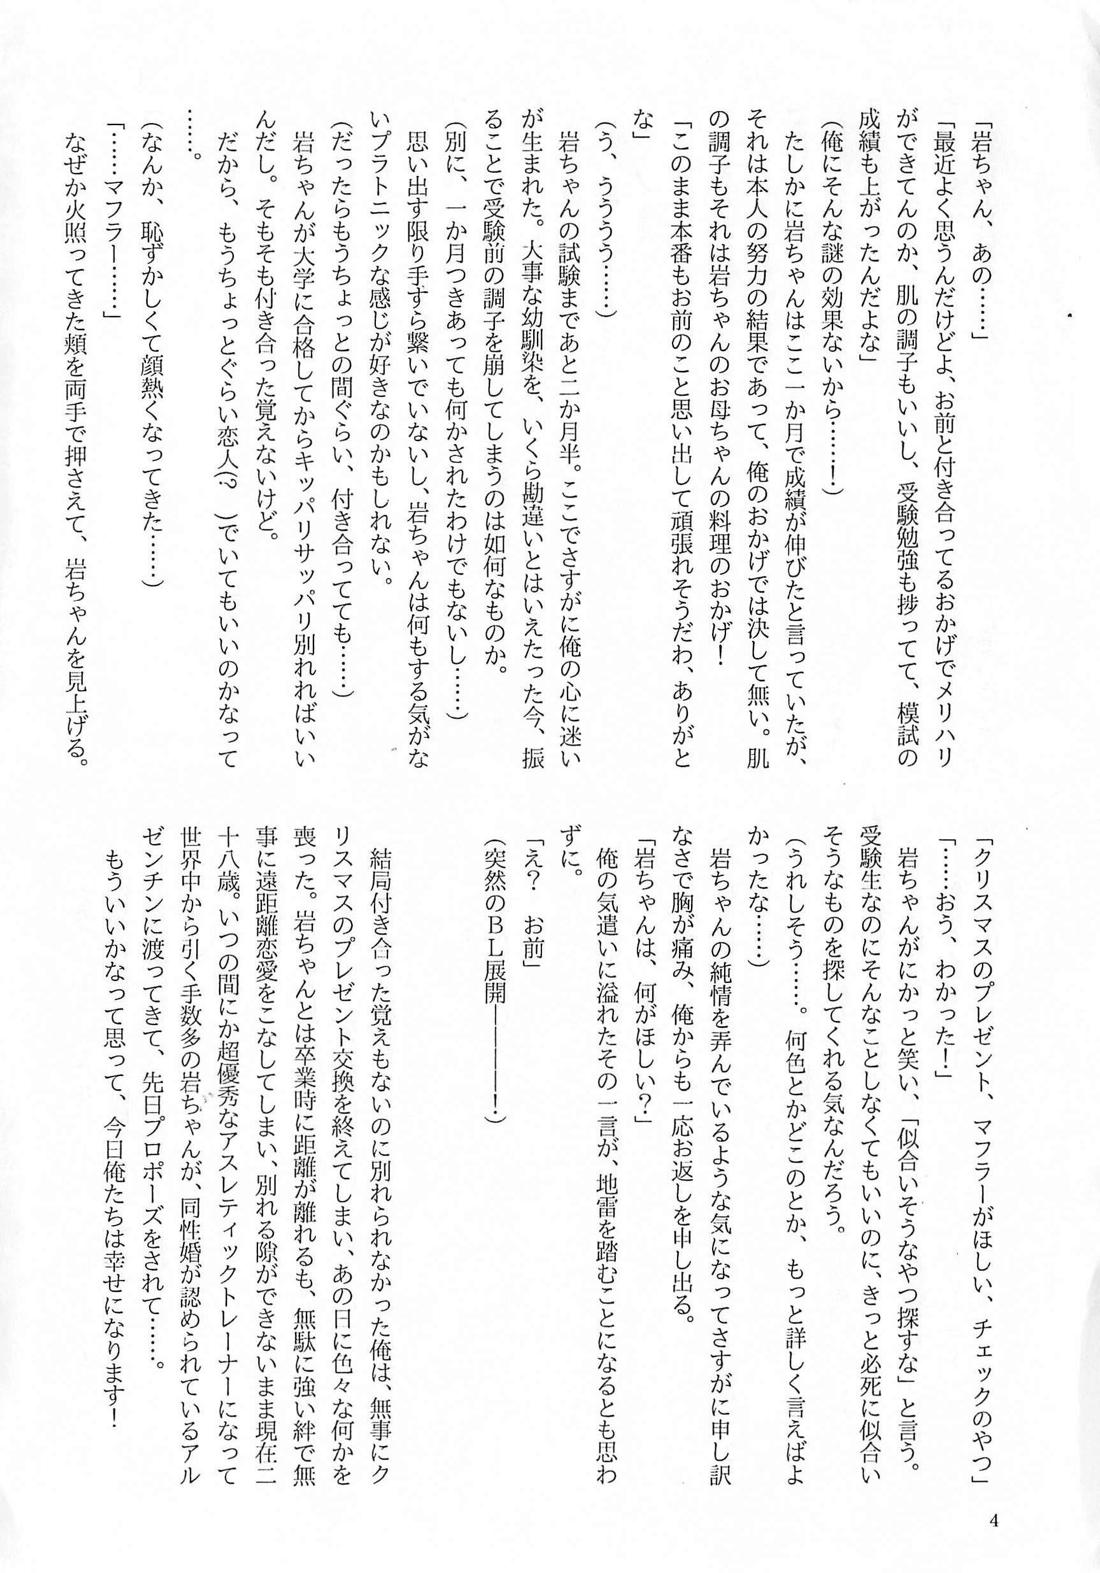 「岩ちゃん、あの……」
「最近よく思うんだけどよ、お前と付き合ってるおかげでメリハリ
ができてんのか、肌の調子もいいし、受験勉強も捗ってて、模試の
成績も上がったんだよな」
(俺にそんな謎の効果ないから……！)
たしかに岩ちゃんはここ一か月で成績が伸びたと言っていたが、
それは本人の努力の結果であって、俺のおかげでは決して無い。肌
の調子もそれは岩ちゃんのお母ちゃんの料理のおかげ！
「このまま本番もお前のこと思い出して頑張れそうだわ、ありがと
な」
(う、うううう……)
岩ちゃんの試験まであと二か月半。ここでさすがに俺の心に迷い
が生まれた。大事な幼馴染を、いくら勘違いとはいえたった今、振
ることで受験前の調子を崩してしまうのは如何なものか。
(別に、一か月つきあっても何かされたわけでもないし……)
思い出す限り手すら繋いでいないし、岩ちゃんは何もする気がな
いプラトニックな感じが好きなのかもしれない。
(だったらもうちょっとの間ぐらい、付き合ってても……)
岩ちゃんが大学に合格してからキッパリサッパリ別れればいい
んだし。そもそも付き合った覚えないけど。
だから、もうちょっとぐらい恋人(？　)でいてもいいのかなって
……。
(なんか、恥ずかしくて顔熱くなってきた……)
「……マフラー……」
なぜか火照ってきた頬を両手で押さえて、岩ちゃんを見上げる。
「クリスマスのプレゼント、マフラーがほしい、チェックのやつ」
「……おう、わかった！」
岩ちゃんがにかっと笑い、「似合いそうなやつ探すな」と言う。
受験生なのにそんなことしなくてもいいのに、きっと必死に似合い
そうなものを探してくれる気なんだろう。
(うれしそう……。何色とかどこのとか、もっと詳しく言えばよ
かったな……)
岩ちゃんの純情を弄んでいるような気になってさすがに申し訳
なさで胸が痛み、俺からも一応お返しを申し出る。
「岩ちゃんは、何がほしい？」
俺の気遣いに溢れたその一言が、地雷を踏むことになるとも思わ
ずに。
「え？　お前」
(突然のＢＬ展開――――！)
結局付き合った覚えもないのに別れられなかった俺は、無事にク
リスマスのプレゼント交換を終えてしまい、あの日に色々な何かを
喪った。岩ちゃんとは卒業時に距離が離れるも、無駄に強い絆で無
事に遠距離恋愛をこなしてしまい、別れる隙ができないまま現在二
十八歳。いつの間にか超優秀なアスレティックトレーナーになって
世界中から引く手数多の岩ちゃんが、同性婚が認められているアル
ゼンチンに渡ってきて、先日プロポーズをされて……。
もういいかなって思って、今日俺たちは幸せになります！
4